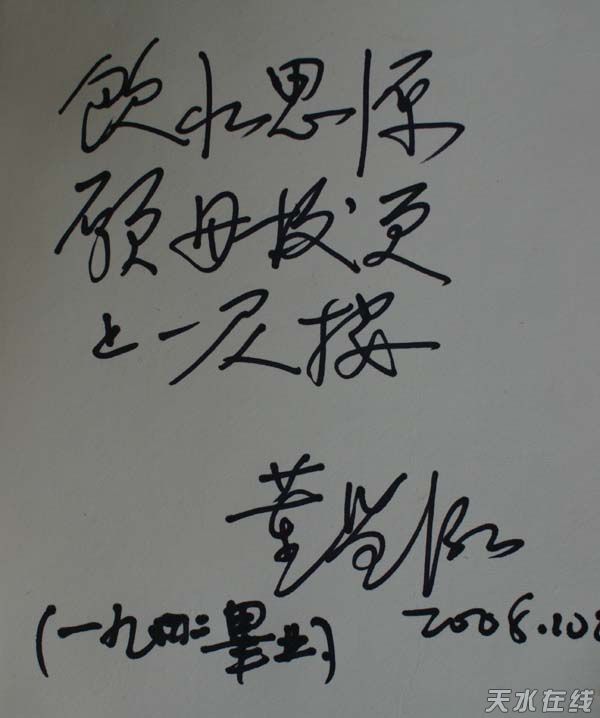 飲水思源
願母校更
上一层楼
董
(一九四二畢业)
2008.10
天水在线